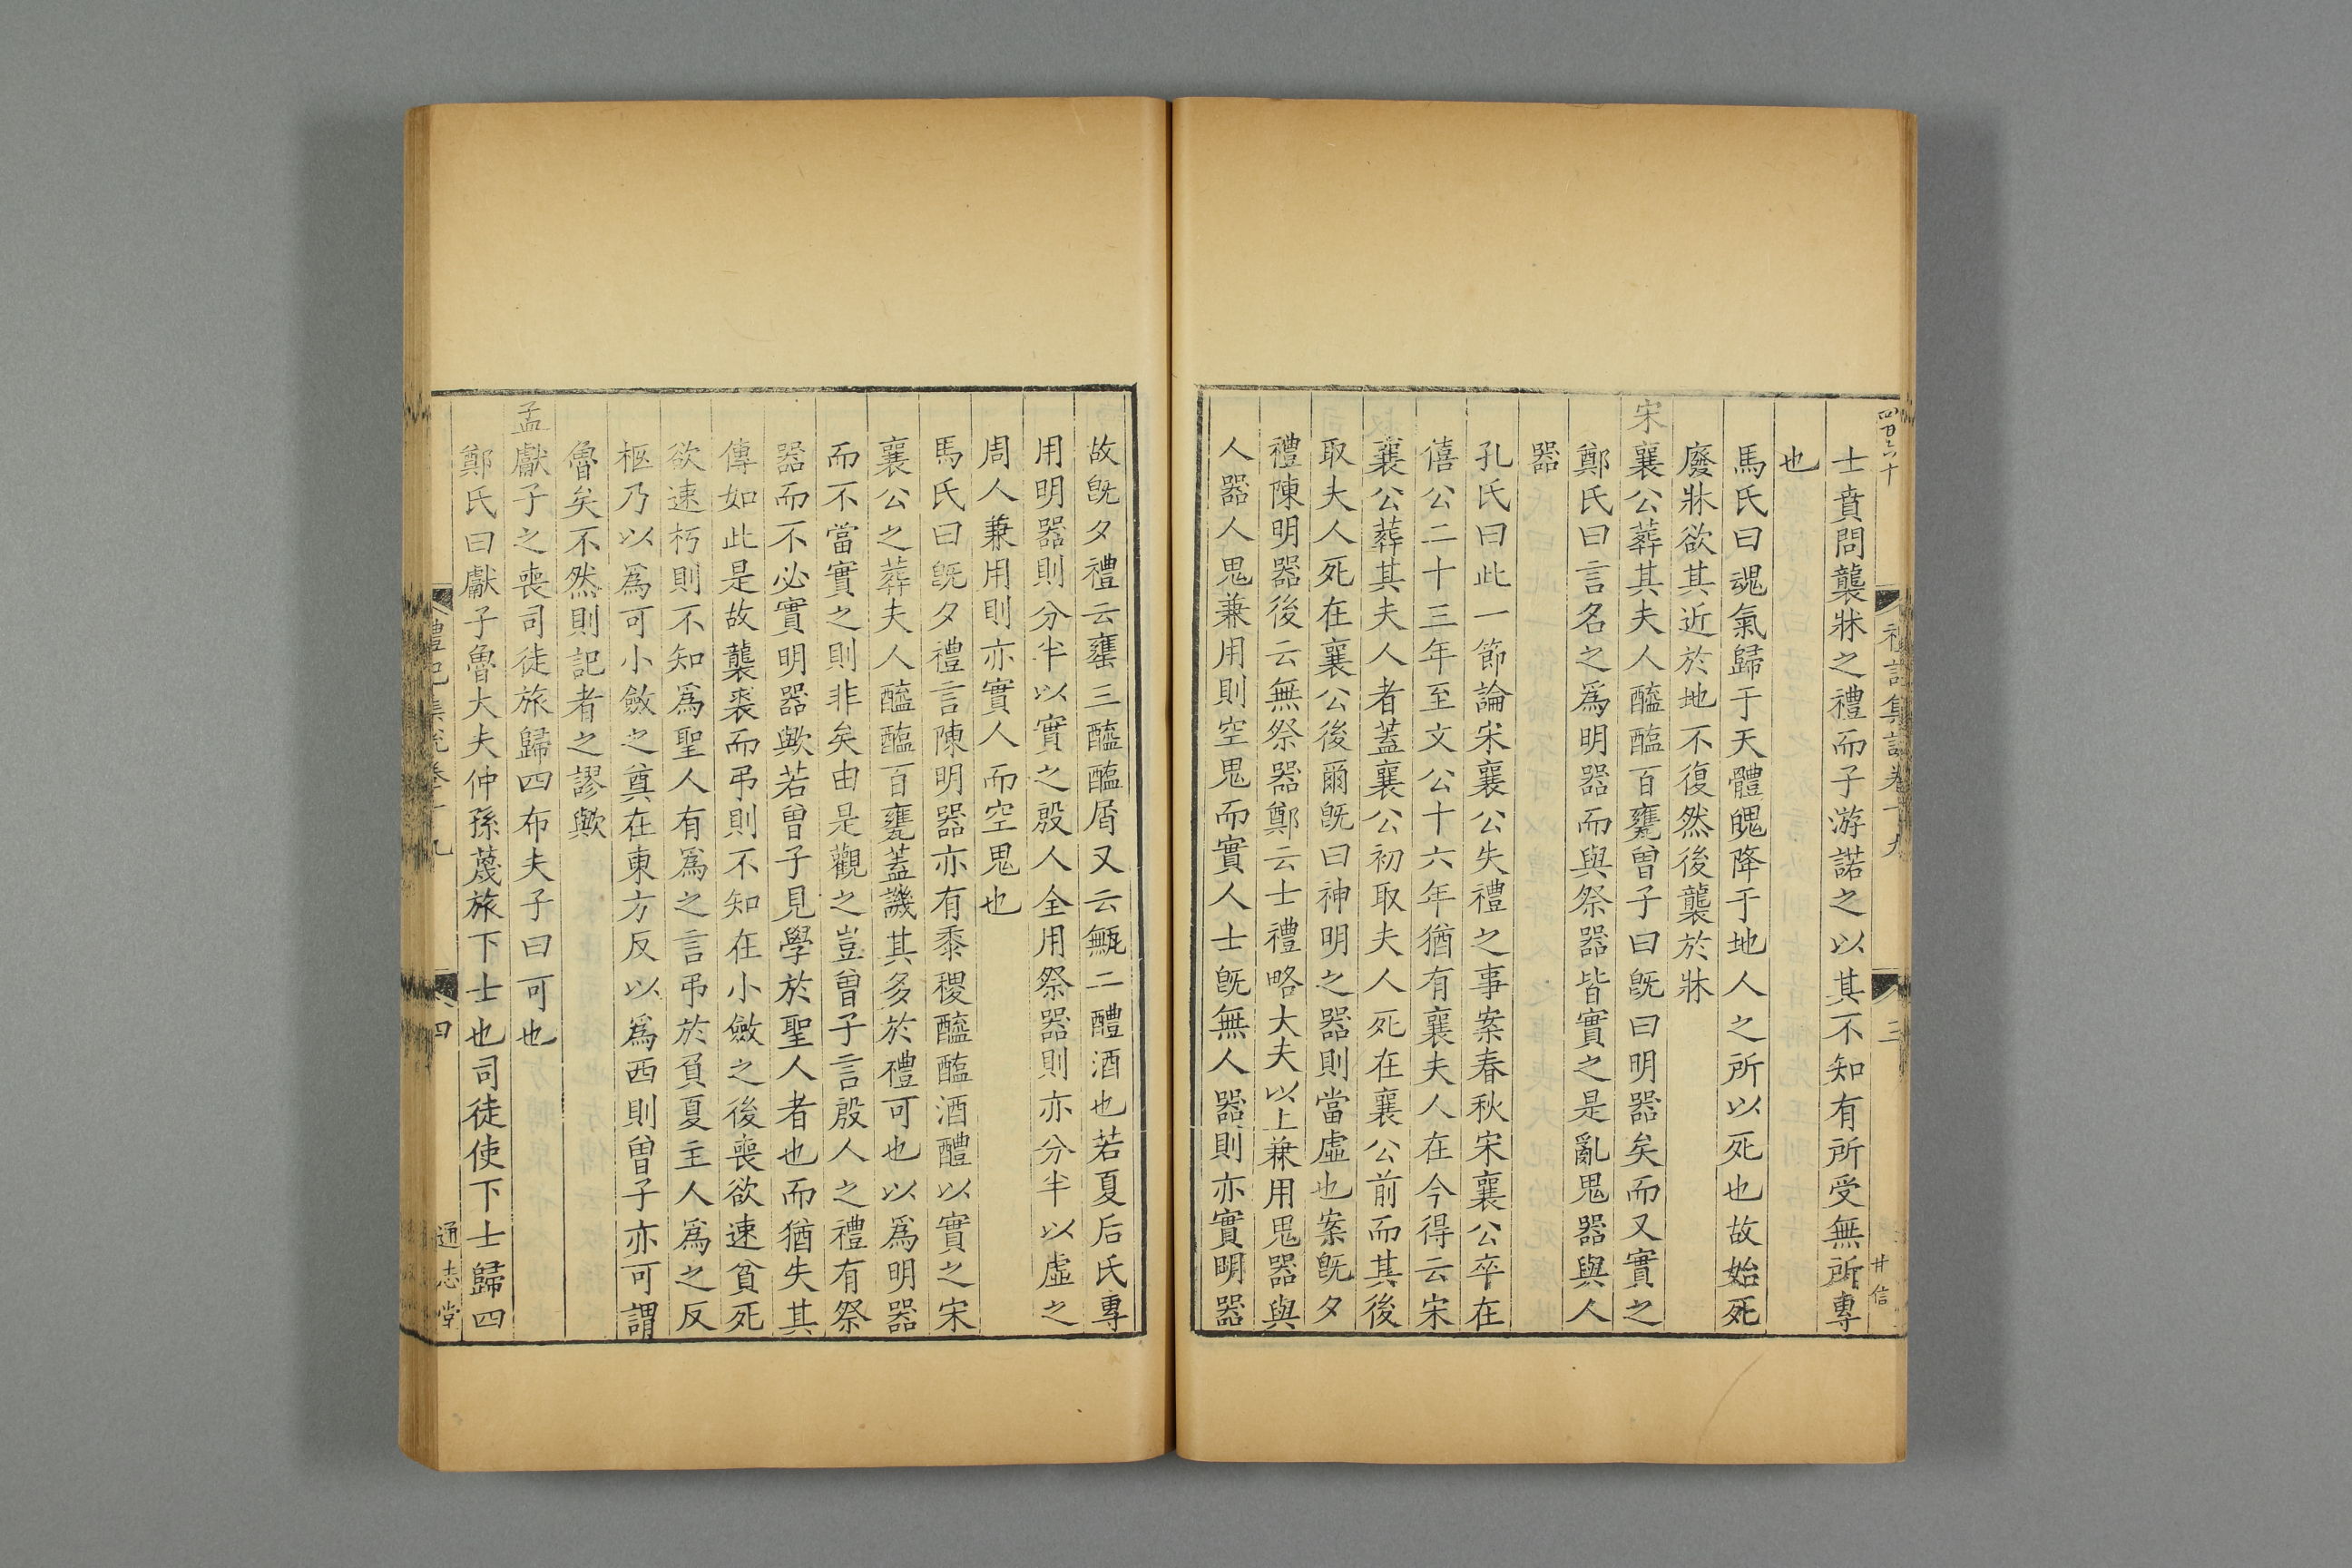 禮記集說卷十九
三
士賁問襲牀之禮而子游諾之以其不知有所受無所專
也
馬氏曰魂氣歸于天體魄降于地人之所以死也故始死
廢牀欲其近於地不復然後襲於牀
宋襄公葬其夫人醯醢百甕曾子曰旣曰明器矣而又實之
鄭氏曰言名之爲明器而與祭器皆實之是亂鬼器與人
器
孔氏曰此一節論宋襄公失禮之事案春秋宋襄公卒在
僖公二十三年至文公十六年猶有襄夫人在今得云宋
襄公葬其夫人者蓋襄公初取夫人死在襄公前而其後
取夫人死在襄公後爾旣曰神明之器則當虛也案旣夕
禮陳明器後云無祭器鄭云士禮略大夫以上兼用鬼器與
人器人鬼兼用則空鬼而實人士旣無人器則亦實明器
故旣夕禮云罋三醯醢屑又云甒二醴酒也若夏后氏專
用明器則分半以實之殷人全用祭器則亦分半以虛之
周人兼用則亦實人而空鬼也
馬氏曰旣夕禮言陳明器亦有黍稷醯醢酒醴以實之宋
襄公之葬夫人醯醢百甕蓋譏其多於禮可也以爲明器
而不當實之則非矣由是觀之豈曾子言殷人之禮有祭
器而不必實明器歟若曾子見學於聖人者也而猶失其
傳如此是故襲裘而弔則不知在小斂之後喪欲速貧死
欲速朽則不知爲聖人有爲之言弔於負夏主人爲之反
柩乃以爲可小斂之奠在東方反以爲西則曾子亦可謂
魯矣不然則記者之謬歟
孟獻子之喪司徒旅歸四布夫子曰可也
鄭氏曰獻子魯大夫仲孫蔑旅下士也司徒使下士歸四
禮記集說卷十九
四
通志堂